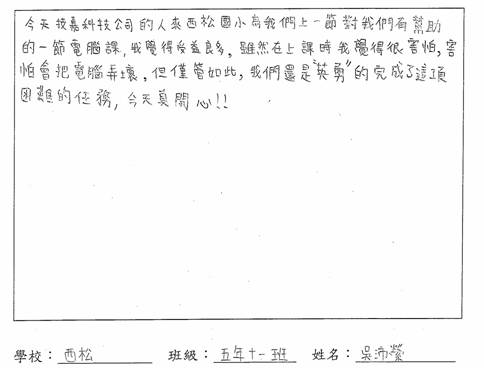 今天技嘉科技公司的人來西松國小為我們上一節對我們有幫助
的一節電腦課,我覺得受益良多,雖然在上課時我覺得很害怕,害
怕會把電腦弄壞,但僅管如此,我們還是"英勇"的完成了這項
困難的任務,今天真開心!!
學校:西松 班級:五年十一班 姓名:吳沛縈